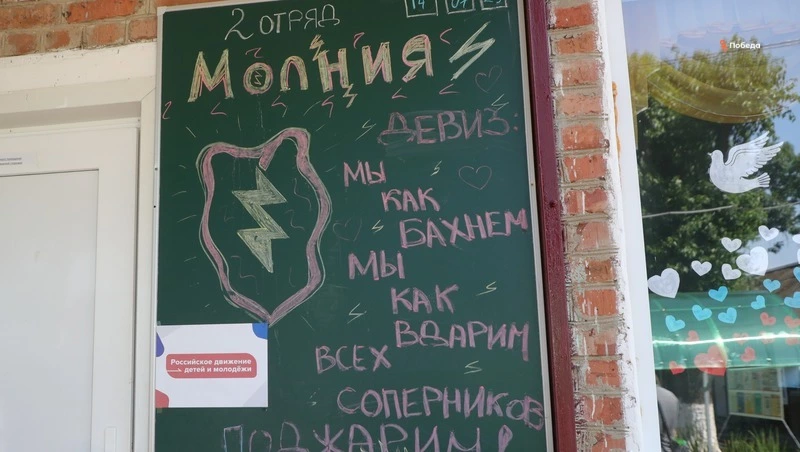 2 ОТРЯД
14 07
МОЛНИЯ
Победа
ДЕВИЗ:
МЫ
КАК
БАХНЕМ
МЫ
КАК
ВДАРИМ
ВСЕХ
СОПЕРНИКОВ
ПОДЖАРИМ!
Российское движение
детей и молодёжи